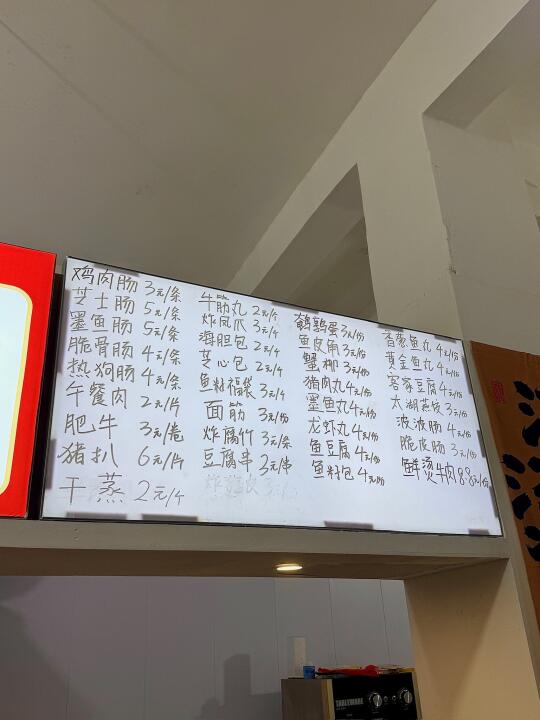 鸡肉肠 3元/条
芝士肠 5元/条
墨鱼肠 5元/条
脆骨肠 4元/条
热狗肠 4元/条
午餐肉 2元/片
肥牛 3元/卷
猪扒 6元/片
干蒸 2元/个
牛筋丸 2元/个
炸凤爪 3元/个
海胆包 2元/个
芝心包 2元/个
鱼籽福袋 3元/个
面筋 3元/份
炸腐竹 3元/条
豆腐串 3元/串
鹌鹑蛋 3元/份
鱼皮角 3元/份
蟹柳 3元/份
猪肉丸 4元/份
墨鱼丸 4元/份
龙虾丸 4元/份
鱼豆腐 4元/份
鱼籽包 4元/份
香葱鱼丸 4元/份
黄金鱼丸 4元/份
客家豆腐 4元/份
太湖燕饺 3元/份
波波肠 4元/份
脆皮肠 3元/份
鲜烫牛肉 8.8元/份
TABLEWARE